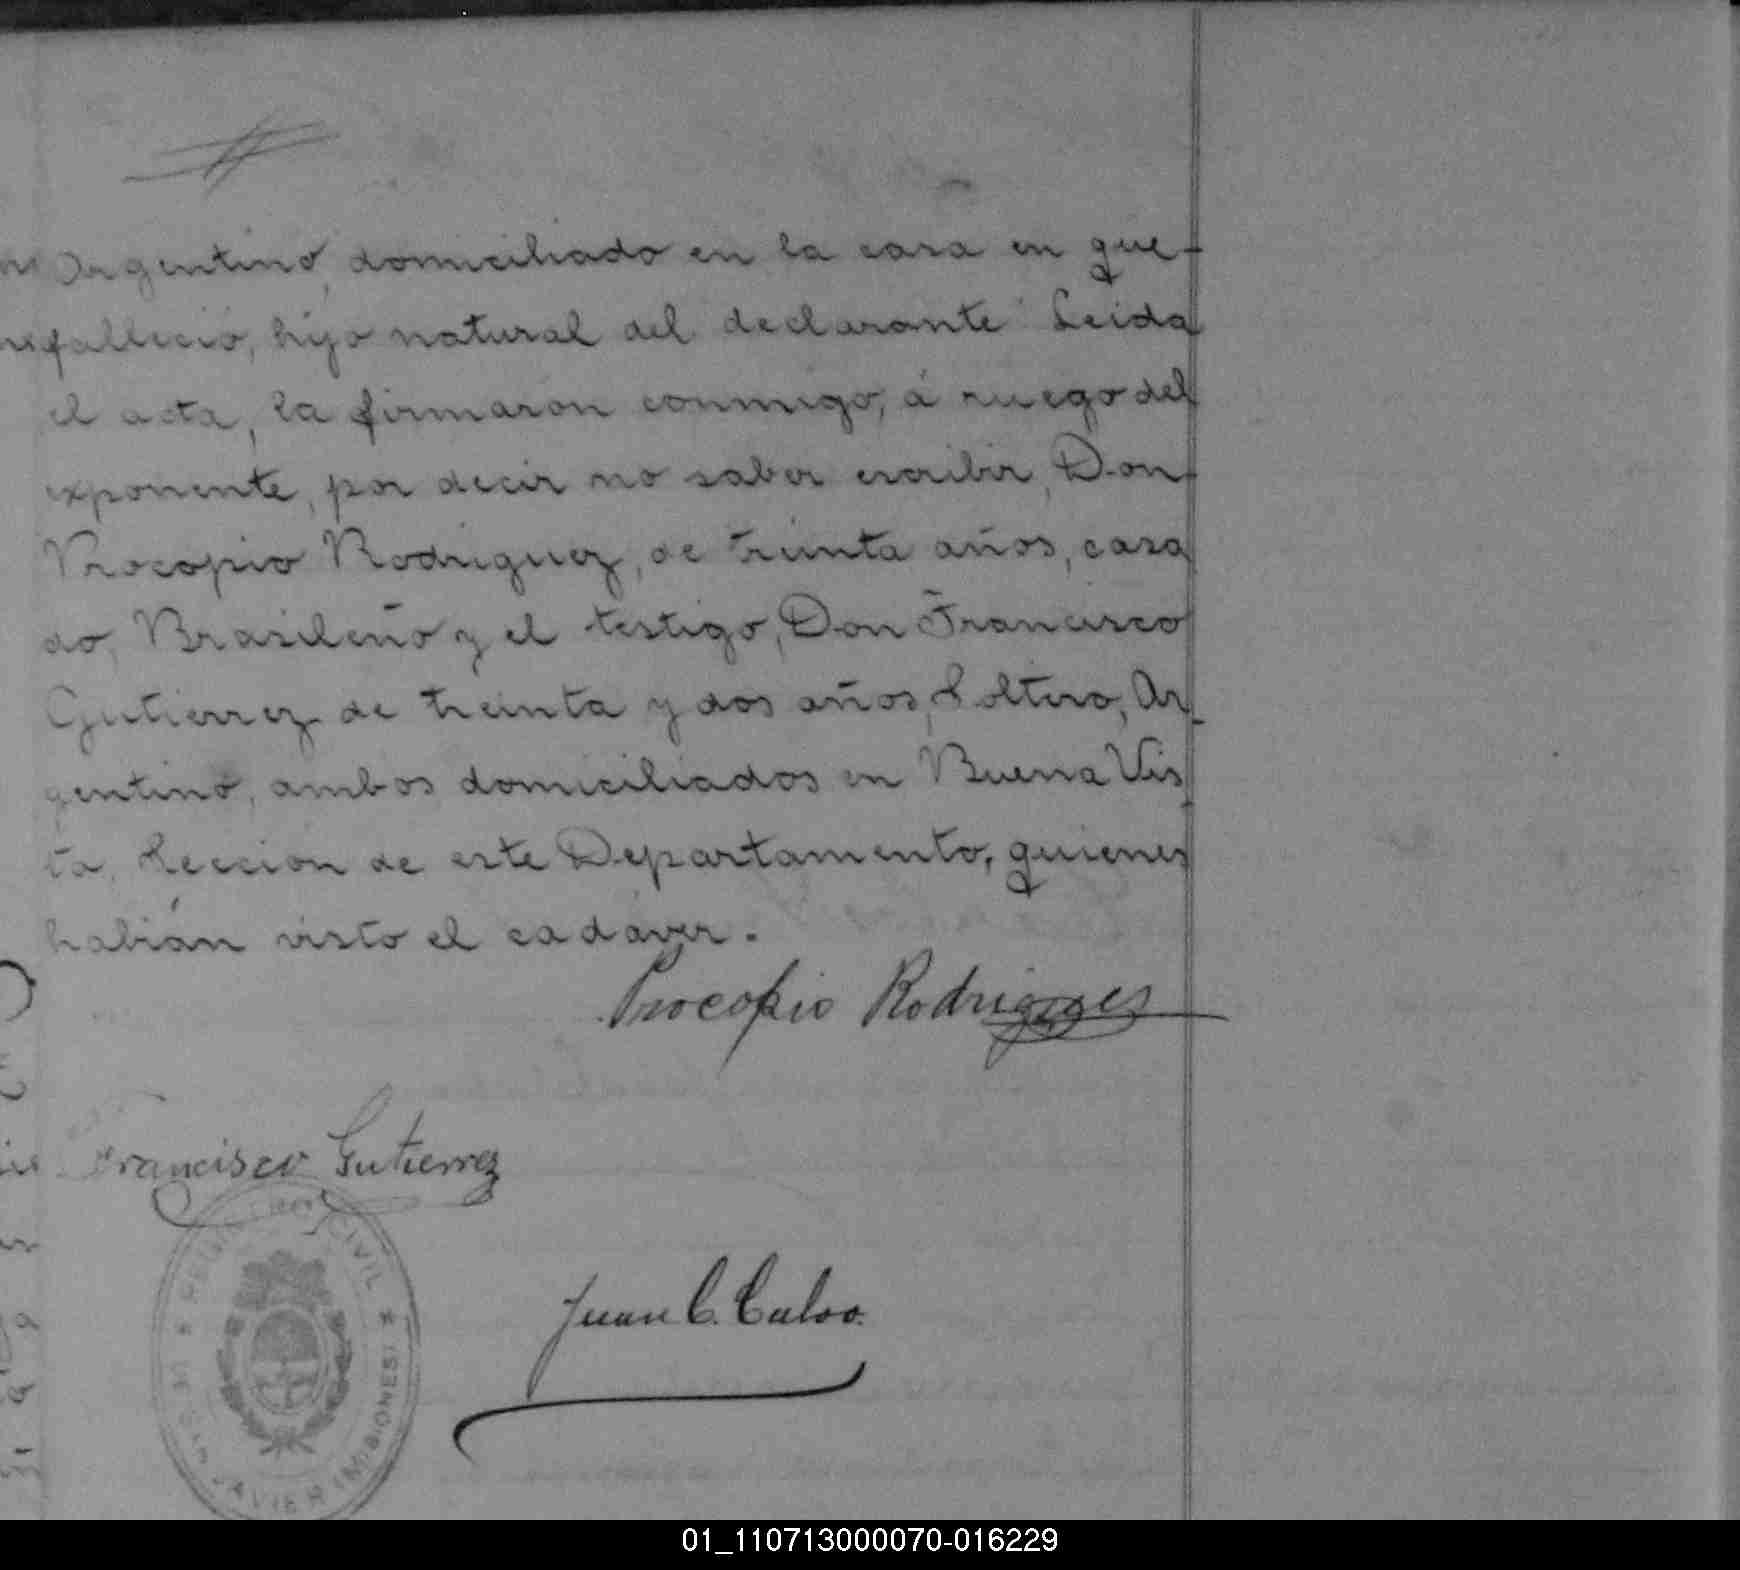 Argentino, domiciliado en la casa en que-
falleció, hijo natural del declarante. Leida
el acta, la firmaron conmigo, á ruego del
exponente, por decir no saber escribir, Don
Procopio Rodriguez, de treinta años, casa
do, Brasileño y el testigo, Don Francisco
Gutierrez de treinta y dos años, Soltero, Ar_
gentino, ambos domiciliados en Buena Vis_
ta, Seccion de este Departamento, quienes
habián visto el cadáver.
Procopio Rodrigues
Francisco Gutierrez
CIVIL
JAVIER (MISIONES)
Juan C. Calvo.
01_110713000070-016229